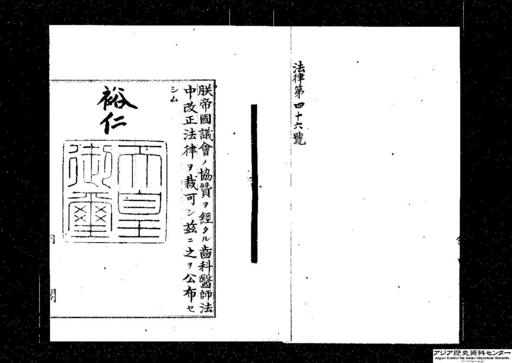 法律第四十六號
朕帝國議會ノ協贊ヲ經タル齒科醫師法
中改正法律ヲ裁可シ茲ニ之ヲ公布セ
シム
裕仁
天皇
御璽
アジア歴史資料センター
Japan Center for Asian Historical Records